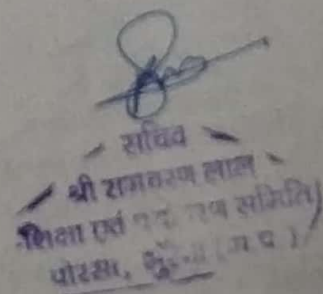 सचिव
श्री रामचरण लाल
शिक्षा एवं समिति
पोरसा, मुरैना (म.प्र.)